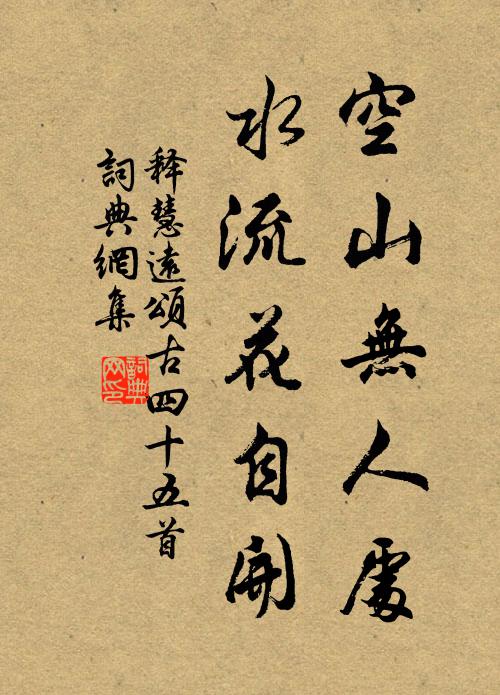 空山無人處
水流花自開
释慧遠頌古四十五首
詞典網集
詞典网印